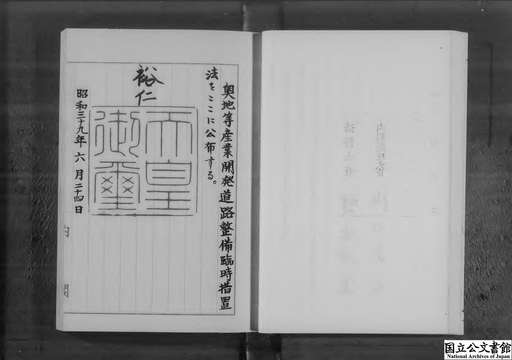 奥地等産業開発道路整備臨時措置
法をここに公布する。
裕仁
天皇
御璽
昭和三十九年六月二十四日
国立公文書館
National Archives of Japan